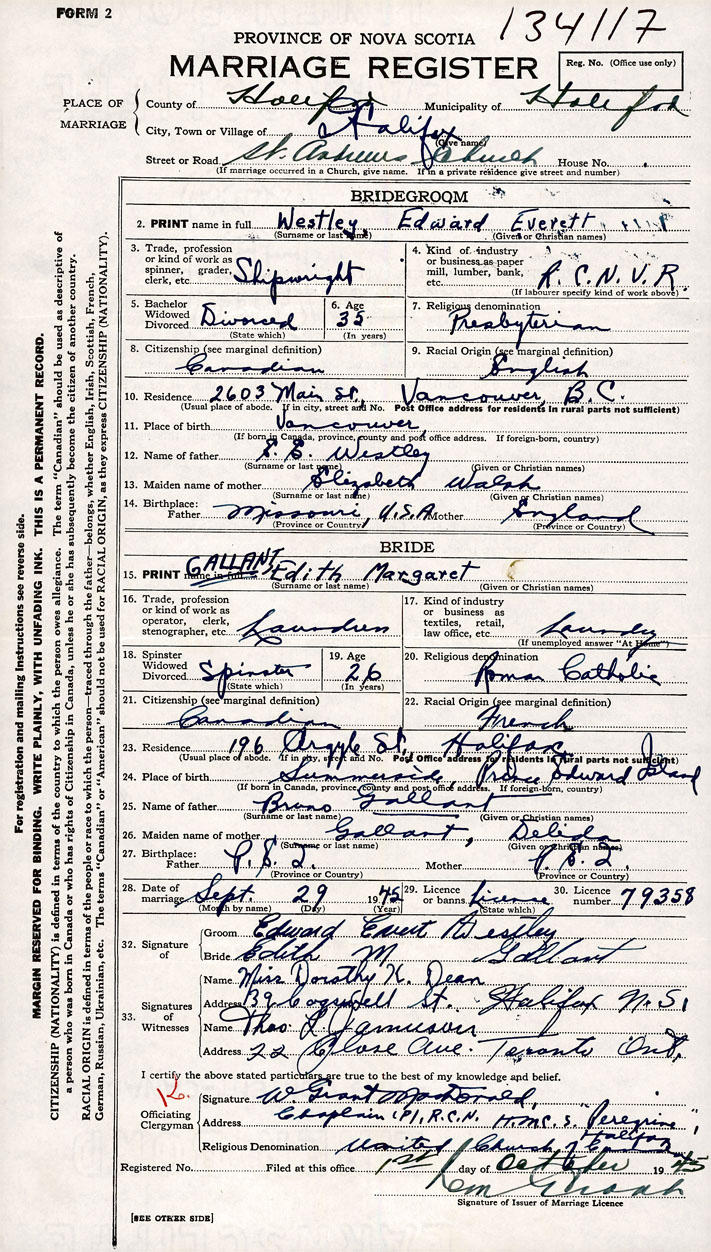 FORM 2
134117
PROVINCE OF NOVA SCOTIA
MARRIAGE REGISTER
Reg. No. (Office use only)
PLACE OF MARRIAGE
County of Halifax Municipality of Halifax
City, Town or Village of Halifax
(Give name)
Street or Road St. Andrews Church House No.
(If marriage occurred in a Church, give name. If in a private residence give street and number)
BRIDEGROOM
2. PRINT name in full Westley, Edward Everett
(Surname or last name) (Given or Christian names)
3. Trade, profession or kind of work as spinner, grader, clerk, etc. Shipwright
4. Kind of industry or business as paper mill, lumber, bank, etc. R.C.N.V.R.
(If labourer specify kind of work above)
5. Bachelor Widowed Divorced Divorced
(State which)
6. Age 35
(In years)
7. Religious denomination Presbyterian
8. Citizenship (see marginal definition) Canadian
9. Racial Origin (see marginal definition) English
10. Residence 2603 Main St., Vancouver, B.C.
(Usual place of abode. If in city, street and No. Post Office address for residents in rural parts not sufficient)
11. Place of birth Vancouver,
(If born in Canada, province, county and post office address. If foreign-born, country)
12. Name of father E. E. Westley
(Surname or last name) (Given or Christian names)
13. Maiden name of mother Elizabeth Walsh
(Surname or last name) (Given or Christian names)
14. Birthplace: Father Missouri, U.S.A. Mother England
(Province or Country) (Province or Country)
BRIDE
15. PRINT name in full GALLANT, Edith Margaret
(Given or Christian names)
16. Trade, profession or kind of work as operator, clerk, stenographer, etc. Laundress
17. Kind of industry or business as textiles, retail, law office, etc. Laundry
(If unemployed answer "At Home")
18. Spinster Widowed Divorced Spinster
(State which)
19. Age 26
(In years)
20. Religious denomination Roman Catholic
21. Citizenship (see marginal definition) Canadian
22. Racial Origin (see marginal definition) French
23. Residence 196 Argyle St. Halifax
(Usual place of abode. If in city, street and No. Post Office address for residents in rural parts not sufficient)
24. Place of birth Summerside, Prince Edward Island
(If born in Canada, province, county and post office address. If foreign-born, country)
25. Name of father Bruno Gallant
(Surname or last name) (Given or Christian names)
26. Maiden name of mother Gallant, Delida
(Surname or last name) (Given or Christian names)
27. Birthplace: Father P.E.I. Mother P.E.I.
(Province or Country) (Province or Country)
28. Date of marriage Sept. 29 1945
(Month by name) (Day) (Year)
29. Licence or banns License
(State which)
30. Licence number 79358
32. Signature of
Groom Edward Evert Westley
Bride Edith M Gallant
33. Signatures of Witnesses
Name Miss Dorothy K. Dean
Address 139 Cogswell St. Halifax N.S.
Name Thos L
Address 22 Close Ave. Toronto Ont.
I certify the above stated particulars are true to the best of my knowledge and belief.
Officiating Clergyman
Signature W Grant MacDonald,
Address Chaplain (P), R.C.N. H.M.C.S "Peregrine", Halifax
Religious Denomination United Church of Canada
Registered No. Filed at this office 1st day of October 1945
Signature of Issuer of Marriage Licence
[SEE OTHER SIDE]
For registration and mailing instructions see reverse side.
MARGIN RESERVED FOR BINDING. WRITE PLAINLY, WITH UNFADING INK. THIS IS A PERMANENT RECORD.
CITIZENSHIP (NATIONALITY) is defined in terms of the country to which the person owes allegiance. The term "Canadian" should be used as descriptive of
a person who was born in Canada or who has rights of Citizenship in Canada, unless he or she has subsequently become the citizen of another country.
RACIAL ORIGIN is defined in terms of the people or race to which the person—traced through the father—belongs, whether English, Irish, Scottish, French,
German, Russian, Ukrainian, etc. The terms "Canadian" or "American" should not be used for RACIAL ORIGIN, as they express CITIZENSHIP (NATIONALITY).